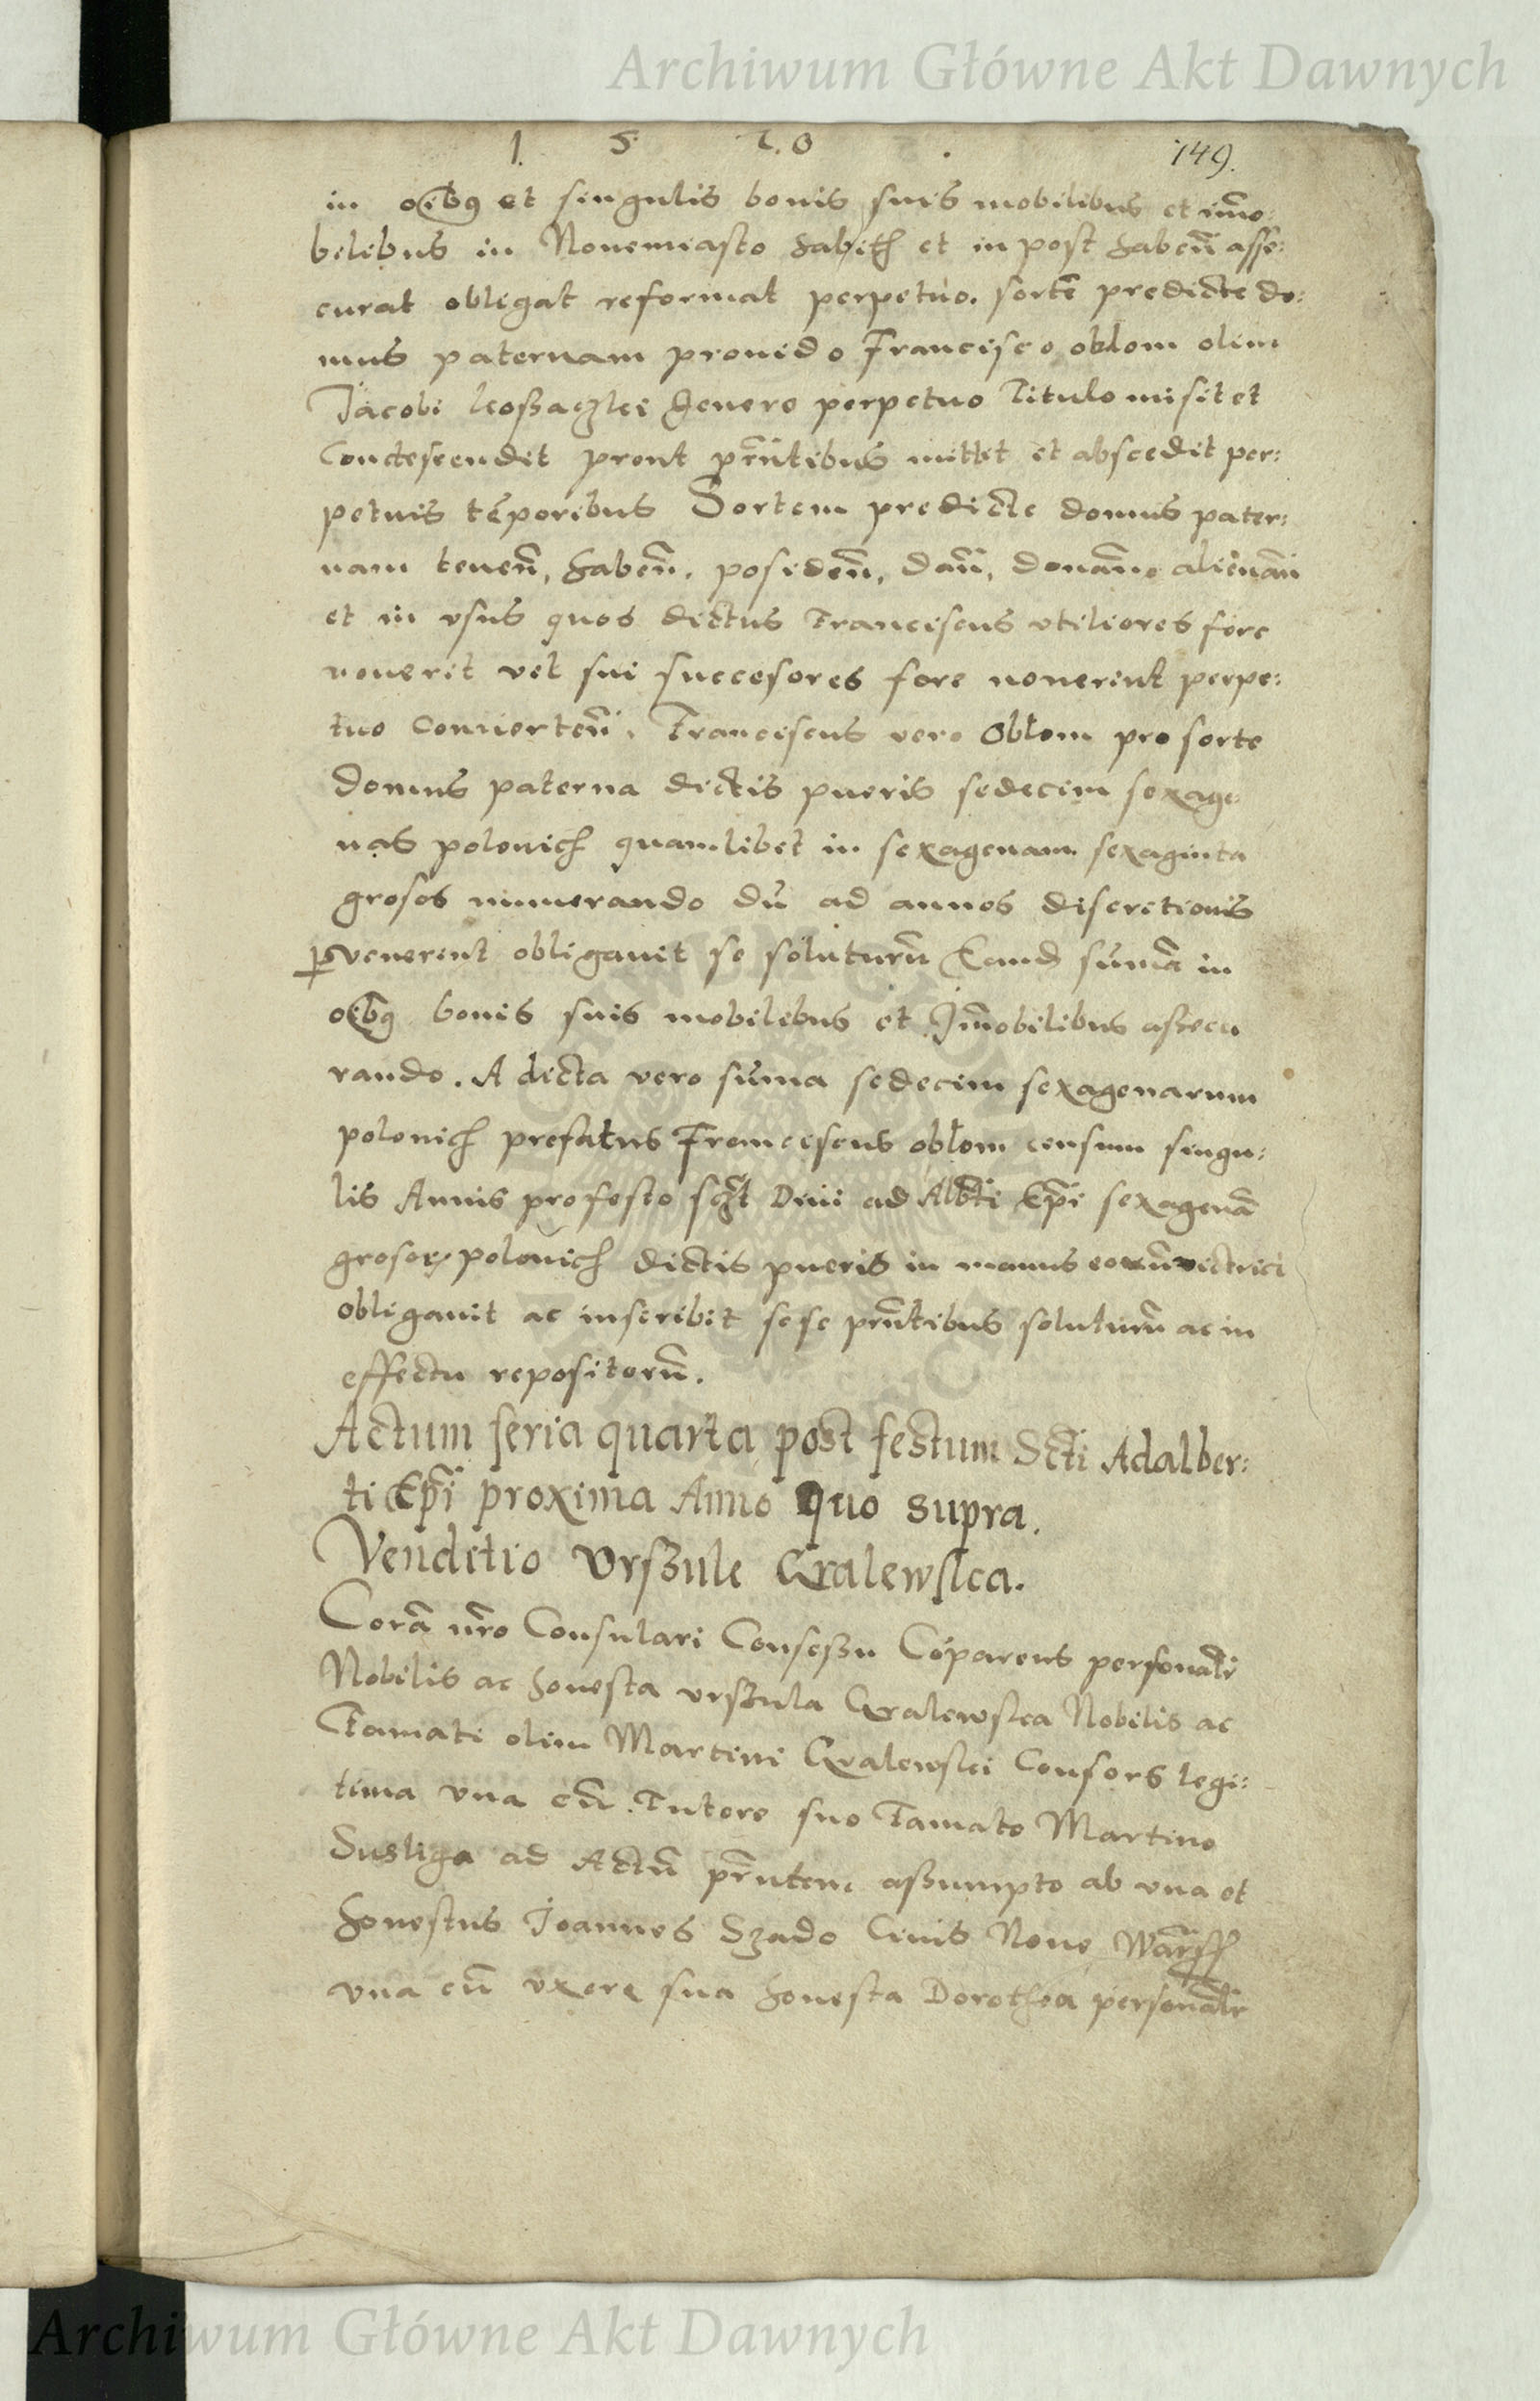 Archiwum Główne Akt Dawnych
1. 5. 7. 0
149.
in oĩbꝯ et singulis bonis suis mobilibus et im̃o:
bilibus in Nouemiasto habitꝭ et in post haben̄ asse:
curat obligat reformat perpetuo. sortẽ predicte do:
mus paternam prouido Francisco oblom olim
Jacobi genero perpetuo Titulo misit et
Condescendit prout pñtibus mittit et abscedit per:
petuis tẽporibus Sortem predicte domus pater:
nam tenen̄, haben̄. posiden̄, dan̄, donan̄. alienan̄
et in vsus quos dictus Franciscus vtiliores fore
nouerit vel sui succesores fore nouerint perpe:
tuo conuerten̄. Franciscus vero Oblom pro sorte
domus paterna dictis pueris sedecim sexage
nas polonicꝭ quamlibet in sexagenam sexaginta
grosos numerando dũ ad annos discretionis
ꝑvenerint obligauit se soluturũ Eandꝭ sũmã in
oĩbꝯ bonis suis mobilibus et Im̃obilibus assecu
rando. A dicta vero sũma sedecim sexagenarum
polonicꝭ prefatus Franciscus oblom censum singu:
lis Annis pro festo Diui ad Albti Ep̃i sexagenã
grosoꝝ polonicꝭ dictis pueris in manus eorũ
obligauit ac inscribit sese pñtibus soluturũ ac in
effectu repositorũ.
Actum feria quarta post festum Scti Adalber:
ti Ep̃i proxima Anno Quo supra.
Venditio Vrszule Gralewska.
Corã nr̃o Consulari Consessu Cõparens personalr̃
Nobilis ac honesta vrszula Gralewska Nobilis ac
Famati olim Martini Gralewski Consors legi:
tima vna cũ Tutore suo Famato Martino
Susliga ad Actũ pñtem assumpto ab vna et
honestus Joannes Szado Ciuis Noue Warss
vna cũ vxore sua honesta Dorothea personalr̃
Archiwum Główne Akt Dawnych